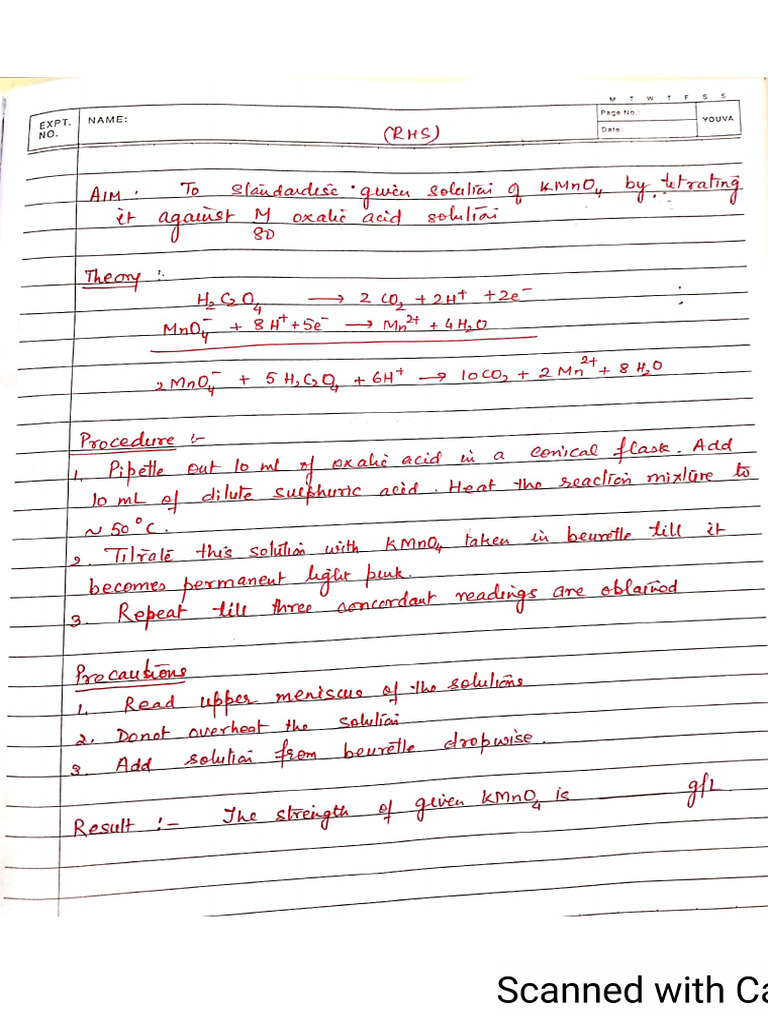 M T W T F S S
EXPT. NO.
NAME:
Page No.:
Date:
YOUVA
(RHS)
AIM : To standardise given solution of KMnO4 by tetrating
it against M/80 oxalic acid solution
Theory :-
H2C2O4 ⟶ 2 CO2 + 2H+ + 2e-
MnO4- + 8H+ + 5e- ⟶ Mn2+ + 4H2O
2 MnO4- + 5 H2C2O4 + 6H+ ⟶ 10CO2 + 2 Mn2+ + 8 H2O
Procedure :-
1. Pipette out 10 ml of oxalic acid in a conical flask. Add
10 mL of dilute sulphuric acid. Heat the reaction mixture to
~ 50°C.
2. Titrate this solution with KMnO4 taken in beurette till it
becomes permanent light pink.
3. Repeat till three concordant readings are obtained
Precautions
1. Read upper meniscus of the solutions
2. Donot overheat the solution
3. Add solution from beurette dropwise.
Result :- The strength of given KMnO4 is ______ g/L
Scanned with Ca